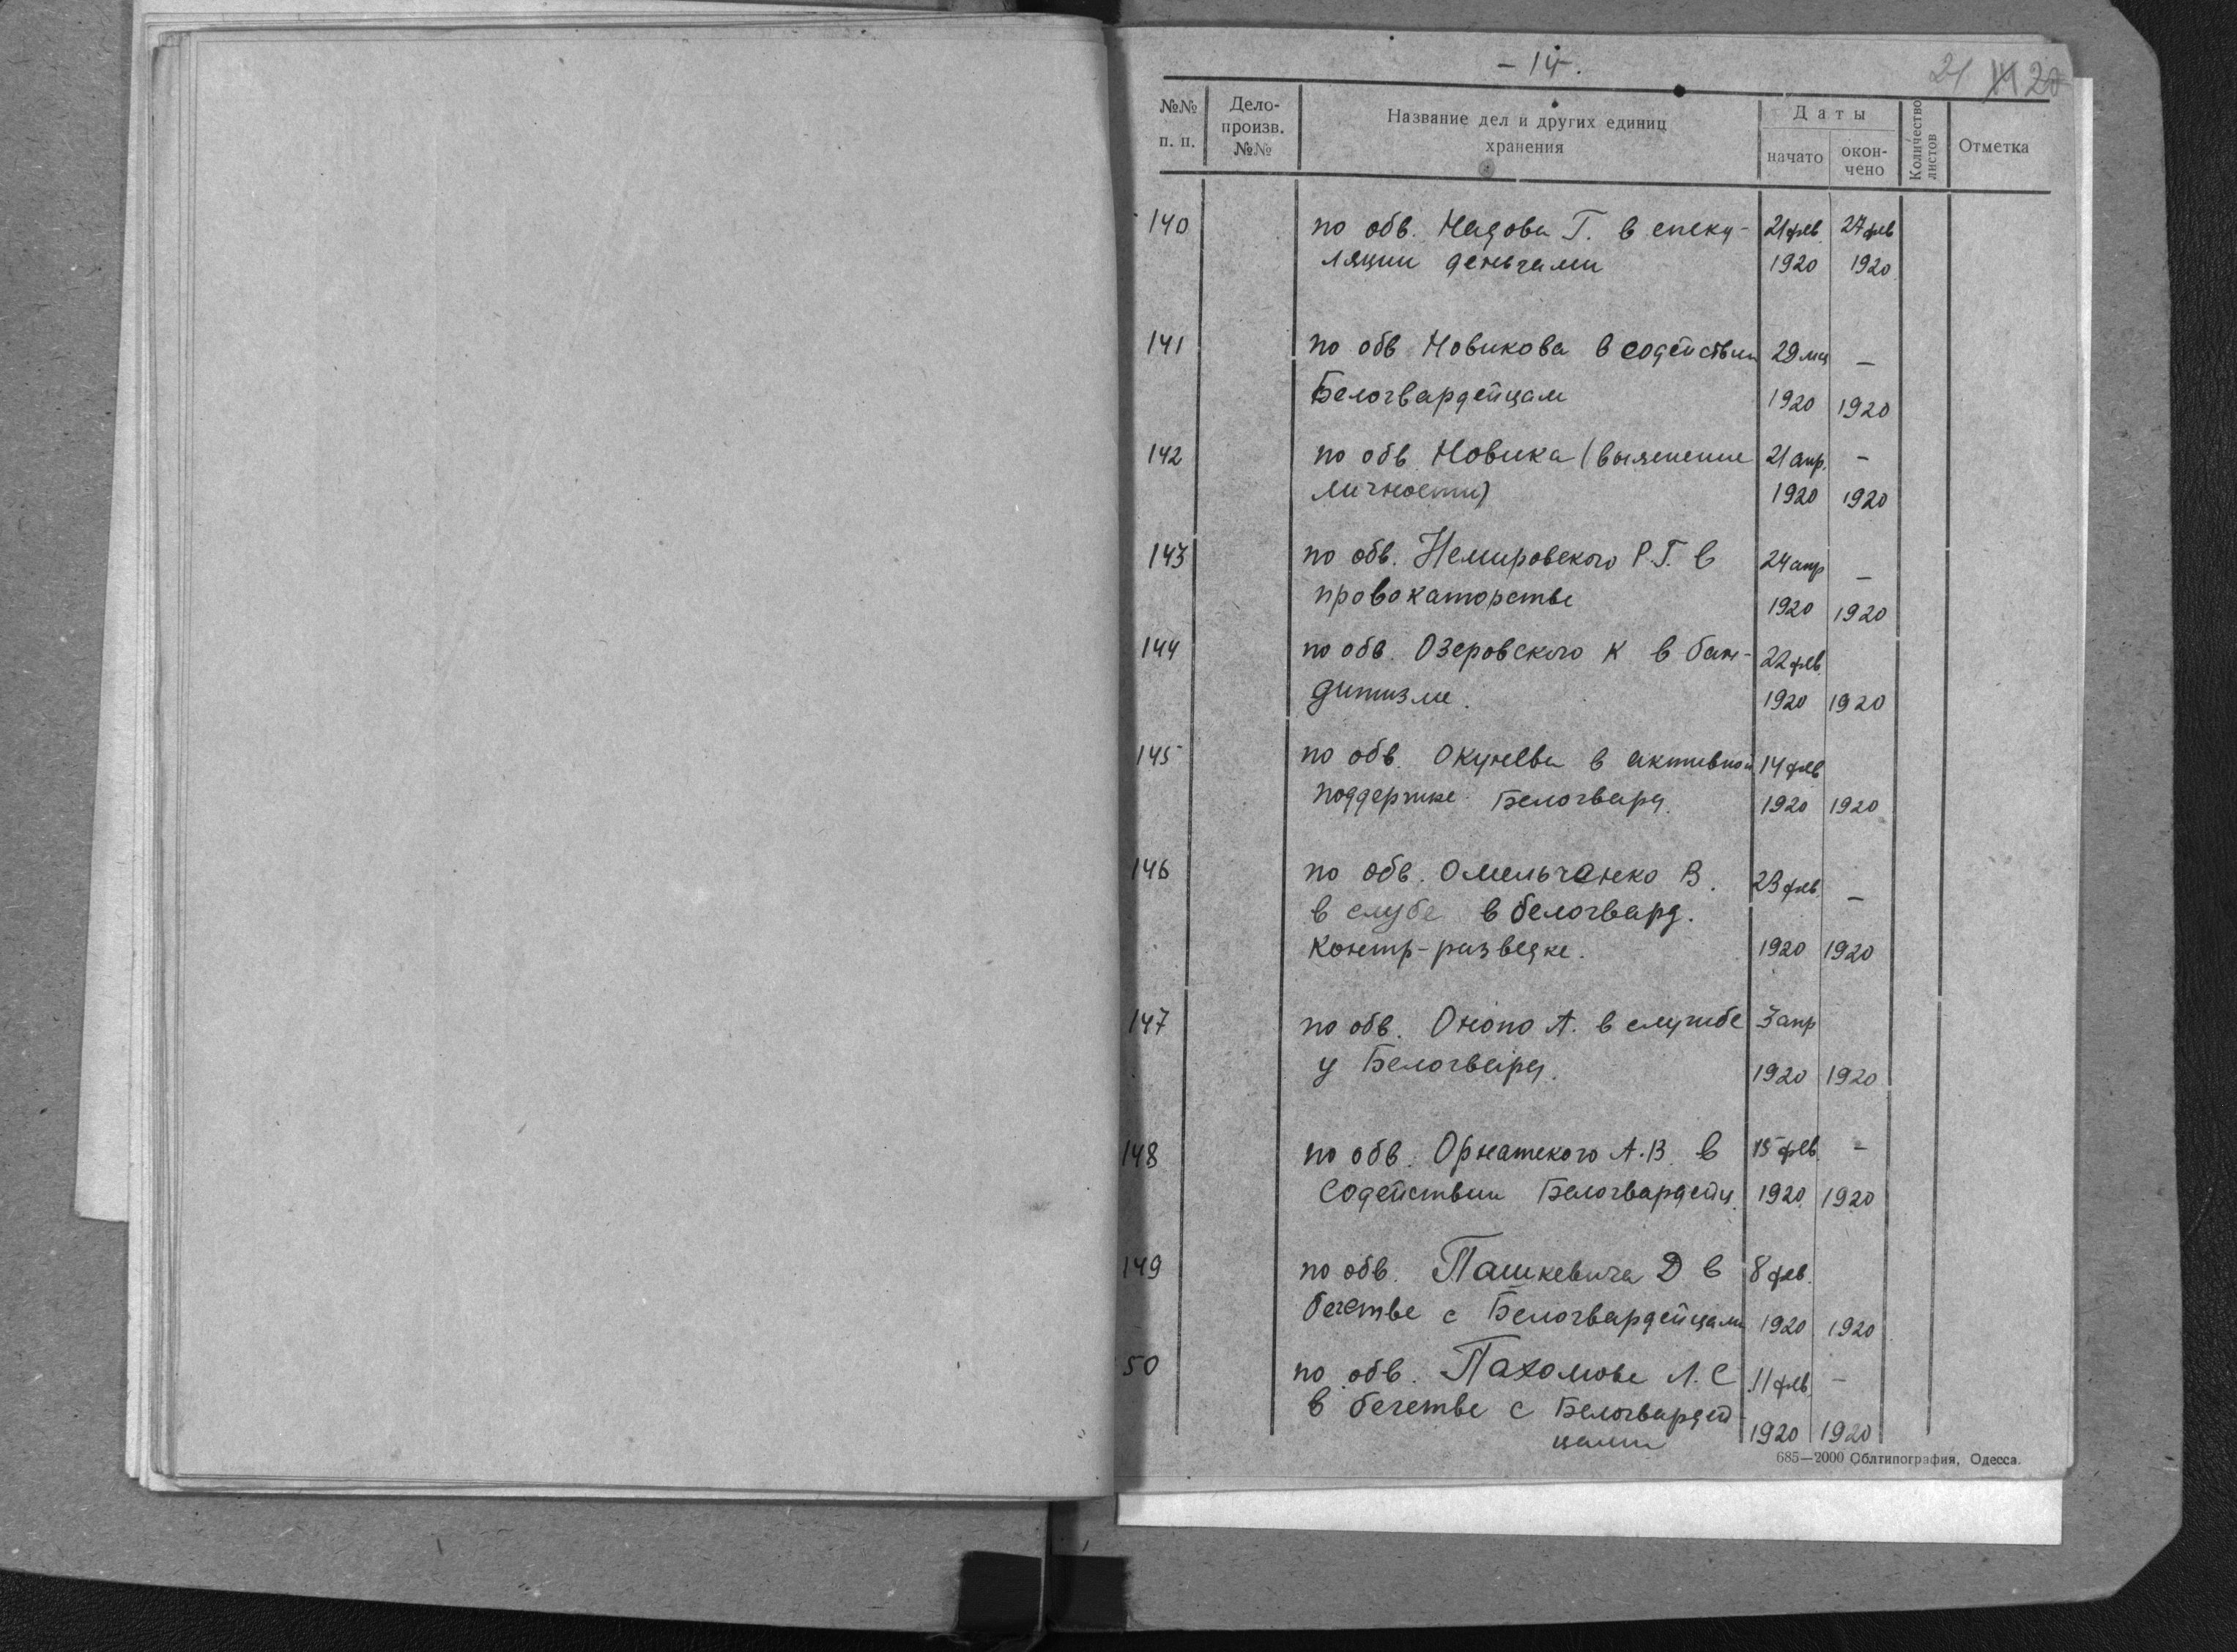 - 14 -.
21 20
№№ п. п.
Дело- произв. №№
Название дел и других единиц хранения
Даты
начато
окон- чено
Количество листов
Отметка
140 по обв. Надова Г. в спеку- 21 фев. 27 фев
ляции деньгами 1920 1920
141 по обв Новикова в содействии 29 –
Белогвардейцам 1920 1920
142 по обв. Новика (выяснение 21 апр. –
личности) 1920 1920
143 по обв. Немировского Р.Г. в 24 апр –
провокаторстве 1920 1920
144 по обв. Озеровского К в бан- 22 фев.
дитизме. 1920 1920
145 по обв. Окунева в активной 14 фев
поддержке Белогвард. 1920 1920
146 по обв. Омельчанко В. 23 фев. –
в слубе в белогвард.
контр-разведке. 1920 1920
147 по обв. Онопо А. в службе 3 апр
у Белогвард. 1920 1920
148 по обв. Орнатского А.В. в 15 фев. –
Содействии Белогвардейц. 1920 1920
149 по обв. Пашкевича Д в 8 фев.
бегстве с Белогвардейцами 1920 1920
50 по обв. Пахомове Л. С 11 фев. –
в бегстве с Белогвардей-
цами 1920 1920
685—2000 Облтипография, Одесса.